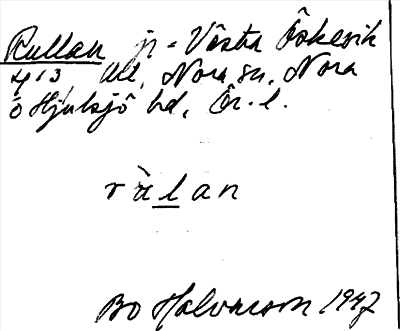 Rullan jr - Västra Öskevik
4/3, utt, Nora sn, Nora
o Hjulsjö hd, Ör. l.
rùlan
Bo Halvarson 1947